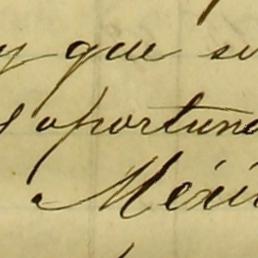 y que su
oportuna
Méxi